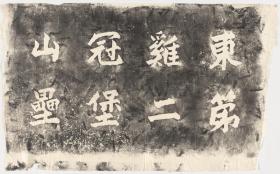 東雞冠山
第二堡壘